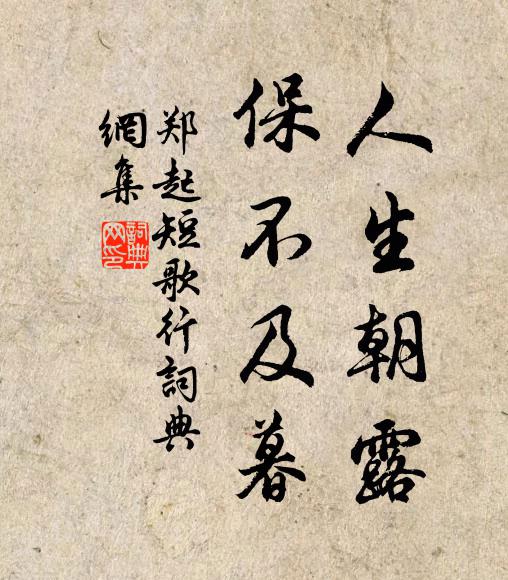 人生朝露
保不及暮
郑起短歌行詞典
網集
詞典
网印